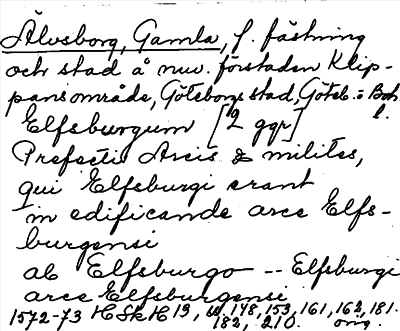 Älvsborg, Gamla, f. fästning
och stad å nuv. förstaden Klip-
pans område, Göteborgs stad, Göteb. o. Boh.
l.
Elfsburgum [2 ggr]
Prefectis Arcis & milites,
qui Elfsburgi erant
in edificande arce Elfs-
burgensi
ab Elfsburgo -- Elfsburgi
arce Elfsburgensi
1572-73 HSkH 19, 148, 153, 161, 162, 181.
182, 210. orig.